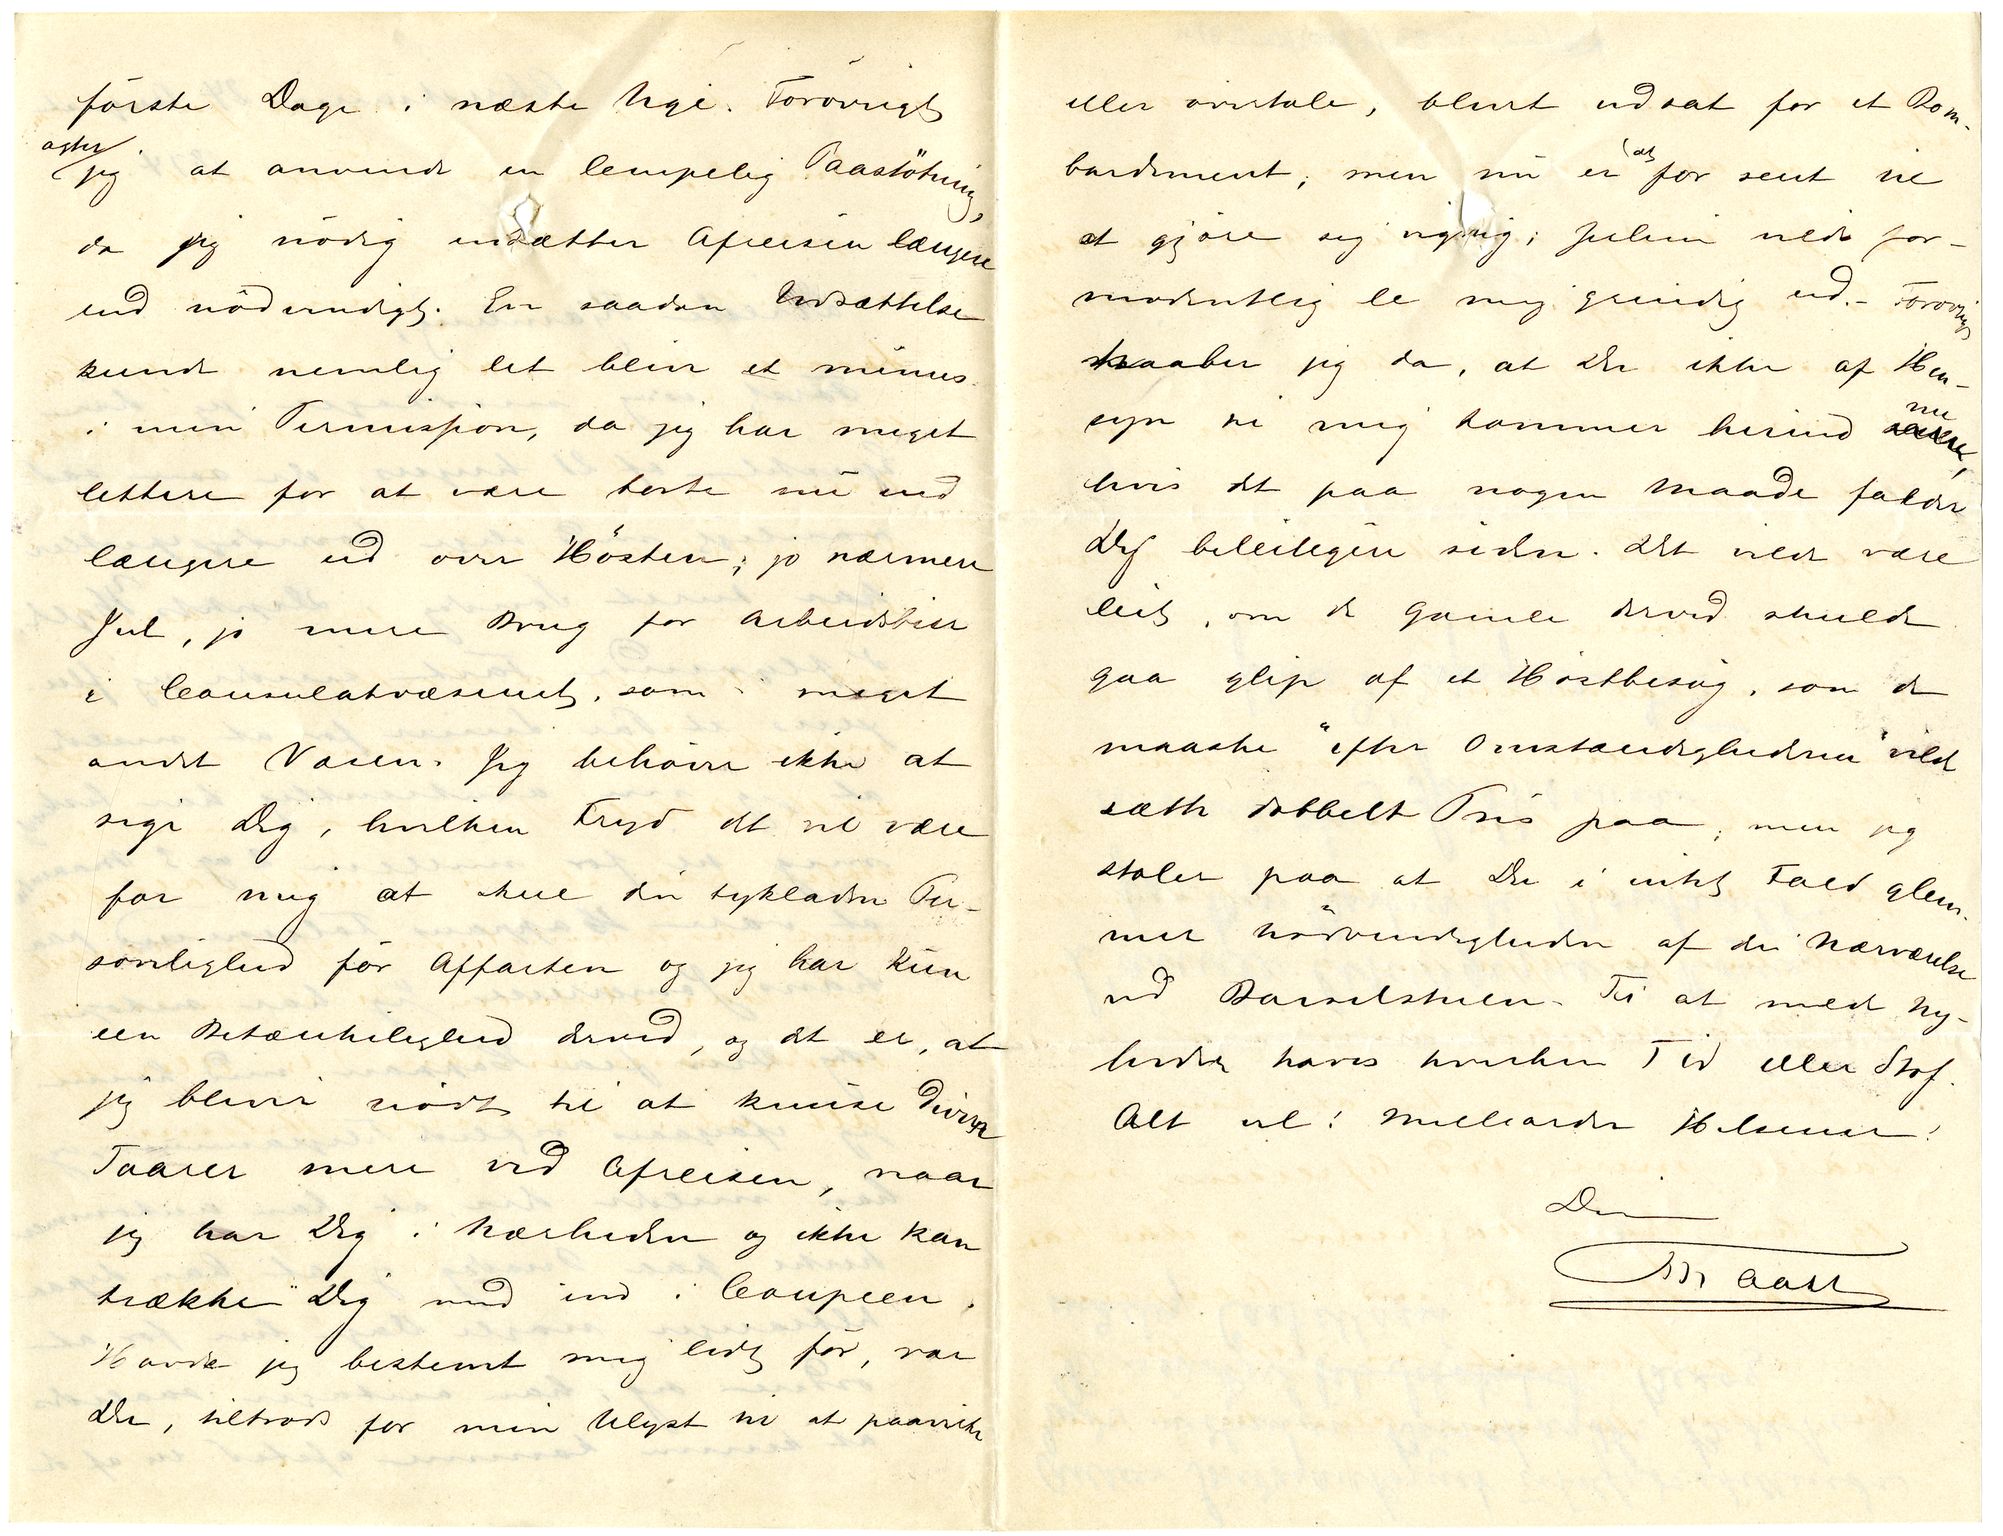 förste Dage i næste Uge. Forövrigt
agter
jeg at anvende en lempelig Paastötning,
da jeg nödig udsætter Afreisen længere
end nödvendigt. En saadan Udsættelse
kunde nemlig let blive et minus
i min Permission, da jeg har meget
lettere for at være borte nu end
længere ud over Hösten; jo nærmere
Jul, jo mere Brug for Arbeidsbier
i Consulatvæsenet, som i meget
andet Væsen. Jeg behöver ikke at
sige Dig, hvilken Fryd det vil være
for mig at skue din tykladne Per-
sonlighed för Affarten og jeg har kun
een Betænkelighed derved, og det er, at
jeg bliver nödt til at knuse diverse
Taarer mere ved Afreisen, naar
jeg har Dig i Nærheden og ikke kan
trække Dig med ind i Coupeen.
Havde jeg bestemt mig lidt för, var
Du, tiltrods for min Ulyst til at paavirke
eller overtale, blevet udsat for et Bom-
bardement; men nu er det for sent til
at gjöre sig vigtig; Julin vilde for-
modentlig le mig grundig ud. – Forövrigt
haaber jeg da, at Du ikke af Hen-
syn til mig kommer herind nu
hvis det paa nogen Maade falder
Dig beleiligere siden. Det vilde være
leit, om de Gamle derved skulde
gaa glip af et Höstbesög, som de
maaske "efter Omstændighederne" vilde
sætte dobbelt Pris paa; men jeg
stoler paa at Du i intet Fald glem-
mer Nödvendigheden af din Nærværelse
ved Barselstuen. Til at melde Ny-
heder haves hverken Tid eller Stof.
Alt vel! Milliarder Hilsener!
Din